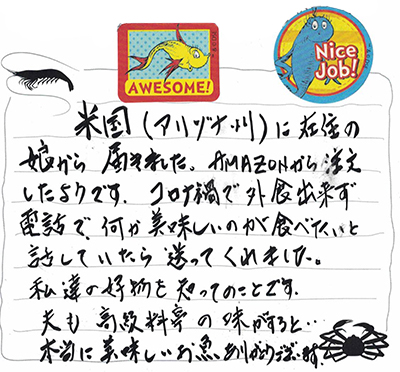 AWESOME!
Nice
Job!
米国(アリゾナ州)に在住の
娘から届きました。AMAZONから注文
したようです。コロナ禍で外食出来ず
電話で、何か美味しいのが食べたいと
話していたら送ってくれました。
私達の好物を知ってのことです。
夫も高級料亭の味がすると…
本当に美味しいお魚ありがとうございます。